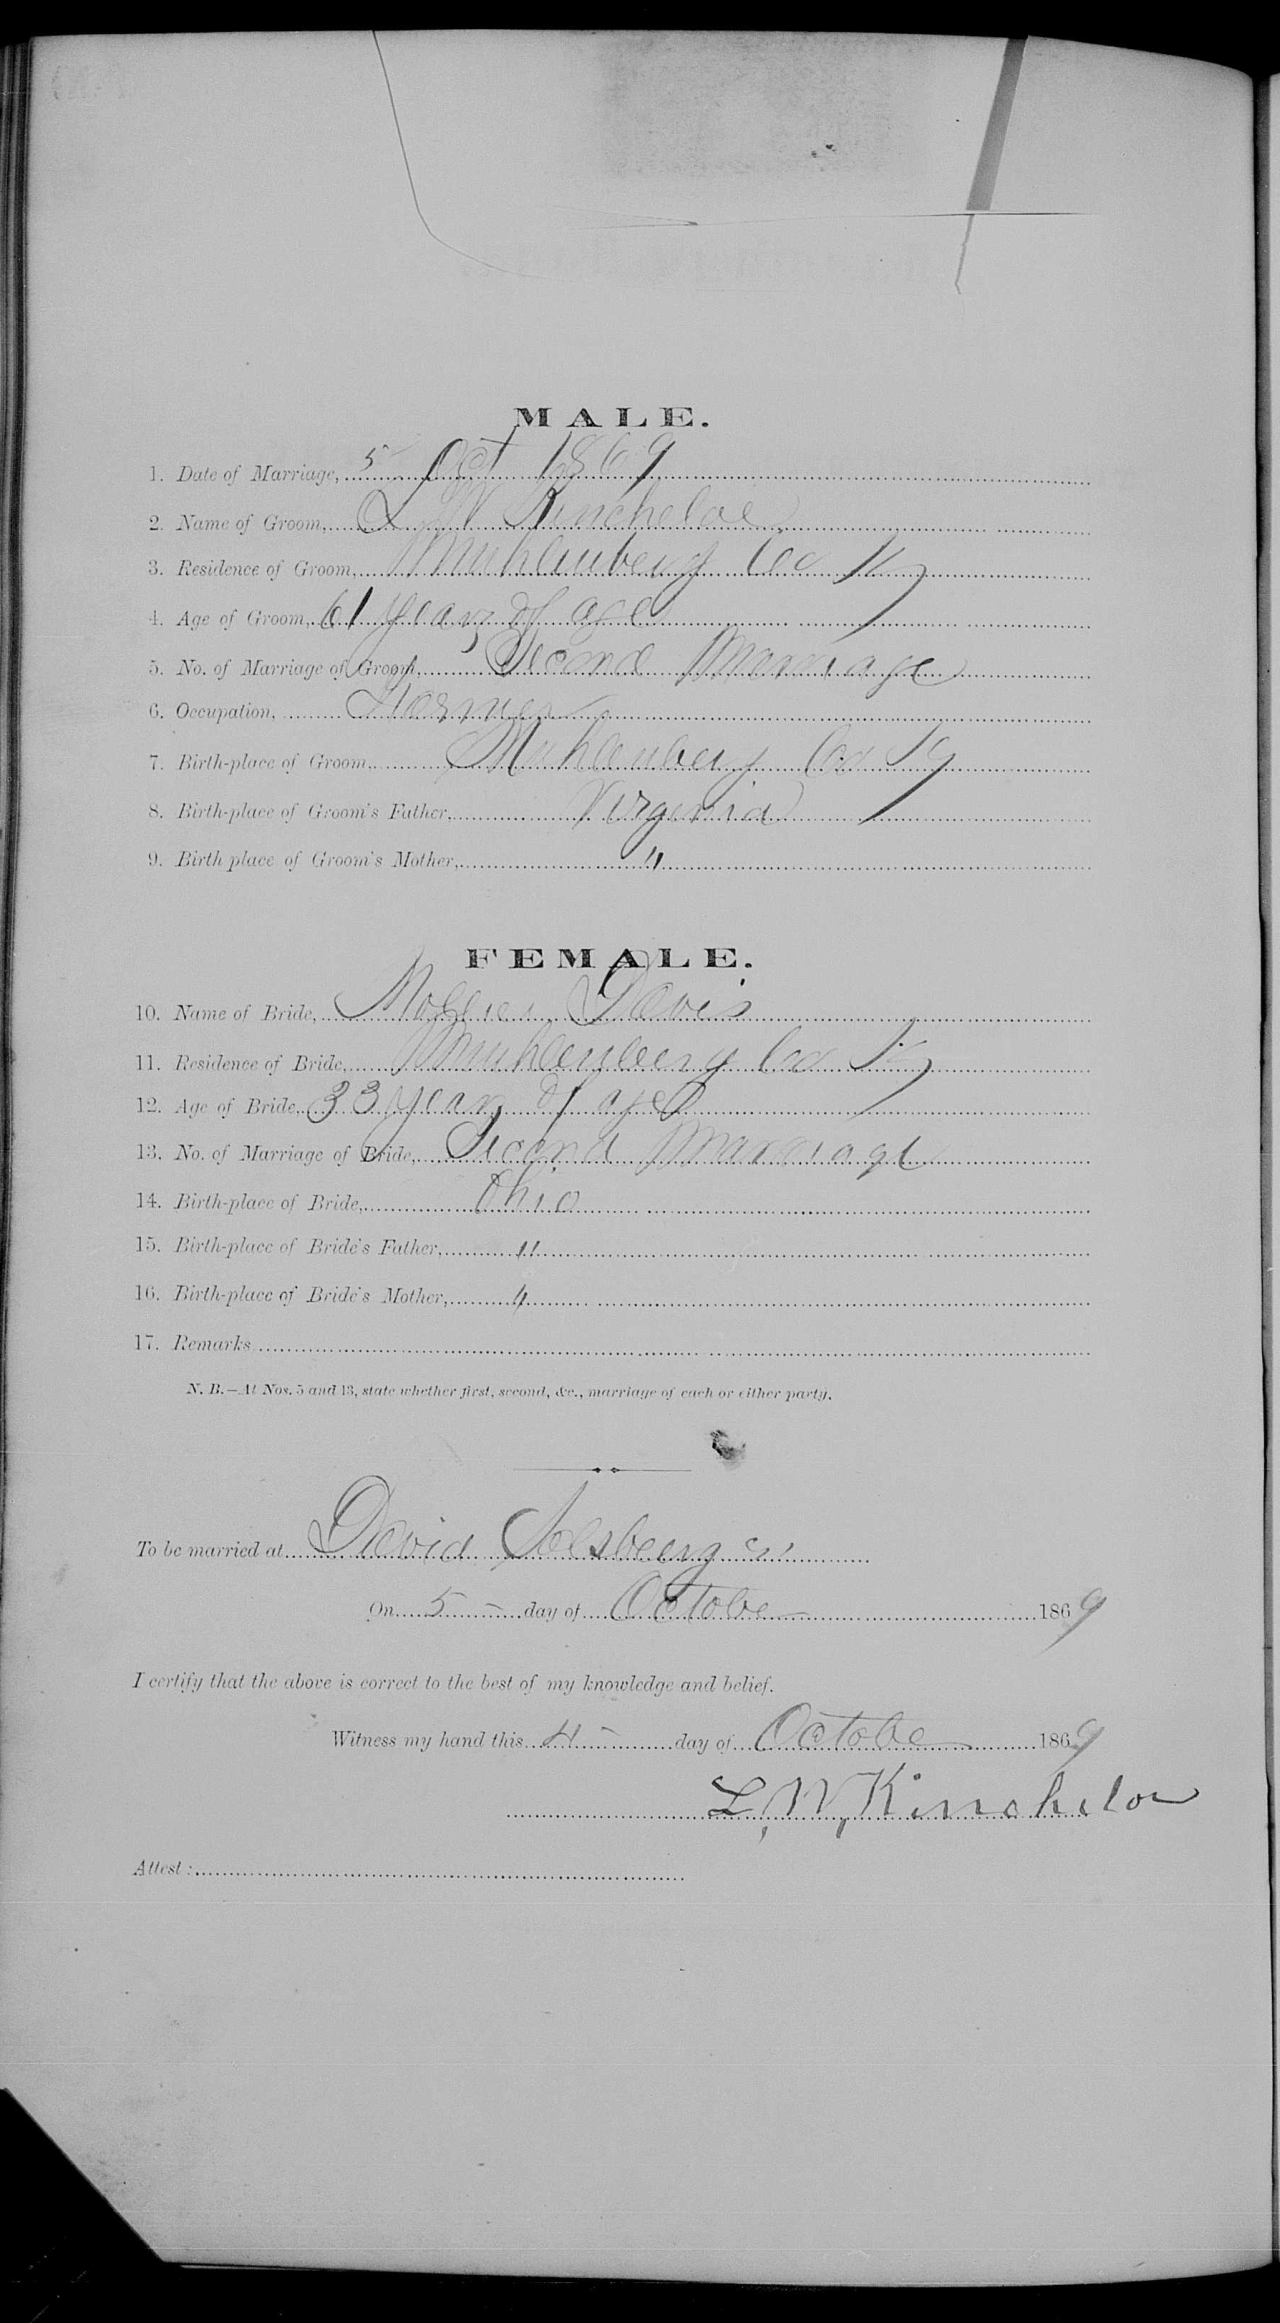 MALE.
1. Date of Marriage, 5 Oct 1869
2. Name of Groom, L W Kincheloe
3. Residence of Groom, Muhlenberg Co Ky
4. Age of Groom, 61 years of age
5. No. of Marriage of Groom, Second Marriage
6. Occupation, Farmer
7. Birth-place of Groom, Muhlenberg Co Ky
8. Birth-place of Groom's Father, Virginia
9. Birth place of Groom's Mother, "
FEMALE.
10. Name of Bride, Mollie Davis
11. Residence of Bride, Muhlenberg Co Ky
12. Age of Bride, 33 years of age
13. No. of Marriage of Bride, Second Marriage
14. Birth-place of Bride, Ohio
15. Birth-place of Bride's Father, "
16. Birth-place of Bride's Mother, "
17. Remarks
N. B.—At Nos. 5 and 13, state whether first, second, &c., marriage of each or either party.
To be married at David
On 5 - day of October 1869
I certify that the above is correct to the best of my knowledge and belief.
Witness my hand this 4 - day of October 1869
L, W, Kincheloe
Attest: